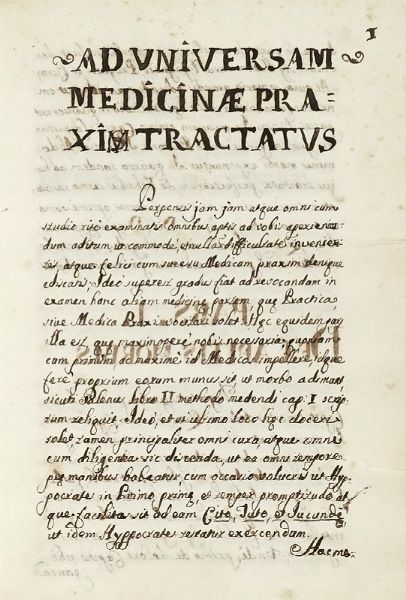 1
AD UNIVERSAM
MEDICINÆ PRA=
XIM TRACTATUS
Perpensis jam jam atque omni cum
studio ritè examinatis omnibus aptis ad vobis aperien
dum aditum ut commodè, et nulla difficultate invenien
tis atque felici cum successu Medicam praxim denque
ediscatis; Ideo superest gradus fiat ad resecandam in
examen hanc aliam medicinę partem quę Practica
sive Medica Praxis vocitari solet. Hęc equidem pars
illa est, quę maximoperè nobis necessaria; quoniam
cum primum ac maximè id Medicos impellere usque
ferè proprium eorum munus sit ut morbo adiman
sicuti Galenus libro II methodo medendi cap: I scrip
tum reliquit. Ideò, et si ultimo loco hęc doceri
solet tamen principaliter omni cura, atque omni
cum diligentia sic discenda, ut ea omni tempore
pre manibus habeatur, cum occasio volucris ut Hyp
pocrate in Primo primę et semper promptitudo at
que facilitas sit ad eam Cito, Tuto, et Jucundè
ut idem Hyppocrates testatur exercendam.
Hac me=